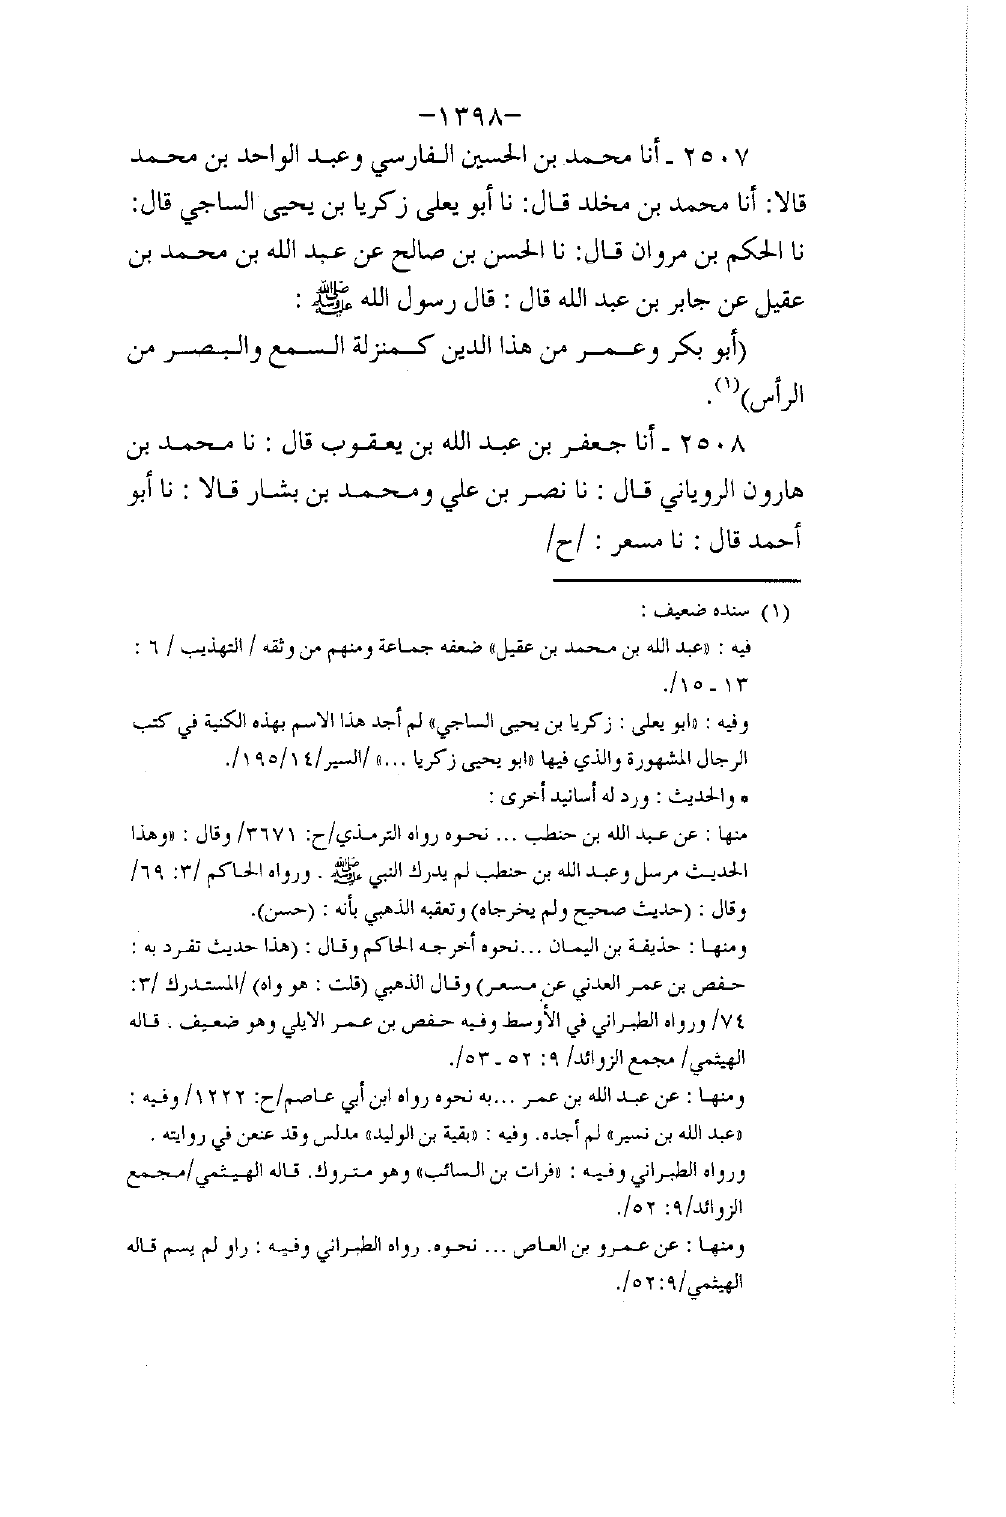 -١٣٩٨-
٢٥٠٧ ـ أنا محمد بن الحسين الفارسي وعبد الواحد بن محمد
قالا: أنا محمد بن مخلد قال: نا أبو يعلى زكريا بن يحيى الساجي قال:
نا الحكم بن مروان قال: نا الحسن بن صالح عن عبد الله بن محمد بن
عقيل عن جابر بن عبد الله قال : قال رسول الله ﷺ :
(أبو بكر وعمر من هذا الدين كمنزلة السمع والبصر من
الرأس)(١).
٢٥٠٨ ـ أنا جعفر بن عبد الله بن يعقوب قال : نا محمد بن
هارون الروياني قال : نا نصر بن علي ومحمد بن بشار قالا : نا أبو
أحمد قال : نا مسعر : /ح/
(١) سنده ضعيف :
فيه : «عبد الله بن محمد بن عقيل» ضعفه جماعة ومنهم من وثقه / التهذيب / ٦ :
١٣ ـ ١٥/.
وفيه : «ابو يعلى : زكريا بن يحيى الساجي» لم أجد هذا الاسم بهذه الكنية في كتب
الرجال المشهورة والذي فيها «ابو يحيى زكريا ...» /السير/١٤/١٩٥/.
• والحديث : ورد له أسانيد أخرى :
منها : عن عبد الله بن حنطب ... نحوه رواه الترمذي/ح: ٣٦٧١/ وقال : «وهذا
الحديث مرسل وعبد الله بن حنطب لم يدرك النبي ﷺ . ورواه الحاكم /٣: ٦٩/
وقال : (حديث صحيح ولم يخرجاه) وتعقبه الذهبي بأنه : (حسن).
ومنها : حذيفة بن اليمان ...نحوه أخرجه الحاكم وقال : (هذا حديث تفرد به :
حفص بن عمر العدني عن مسعر) وقال الذهبي (قلت : هو واه) /المستدرك /٣:
٧٤/ ورواه الطبراني في الأوسط وفيه حفص بن عمر الايلي وهو ضعيف . قاله
الهيثمي/ مجمع الزوائد/ ٩: ٥٢ ـ ٥٣/.
ومنها : عن عبد الله بن عمر ...به نحوه رواه ابن أبي عاصم/ح: ١٢٢٢/ وفيه :
«عبد الله بن نسير» لم أجده. وفيه : «بقية بن الوليد» مدلس وقد عنعن في روايته .
ورواه الطبراني وفيه : «فرات بن السائب» وهو متروك. قاله الهيثمي/مجمع
الزوائد/٩: ٥٢/.
ومنها : عن عمرو بن العاص ... نحوه. رواه الطبراني وفيه : راو لم يسم قاله
الهيثمي/٩:٥٢/.